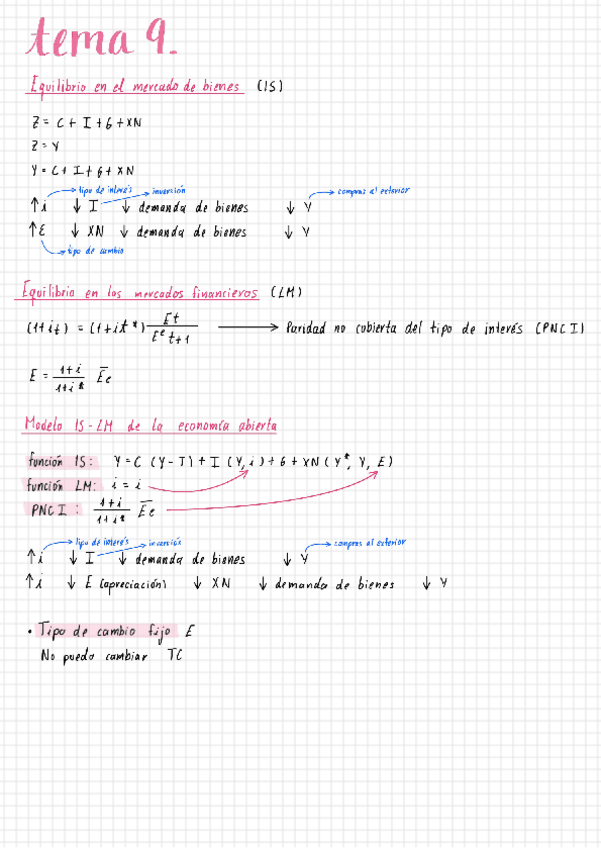 tema 9.
Equilibrio en el mercado de bienes (IS)
Z = C + I + G + XN
Z = Y
Y = C + I + G + XN
tipo de interés inversión compras al exterior
↑i ↓ I ↓ demanda de bienes ↓ Y
↑E ↓ XN ↓ demanda de bienes ↓ Y
tipo de cambio
Equilibrio en los mercados financieros (LM)
(1+it) = (1+it*) Et / Eᵉt+1 → Paridad no cubierta del tipo de interés (PNCI)
E = 1+i / 1+i* Ēe
Modelo IS-LM de la economía abierta
función IS: Y = C (Y-T) + I (Y, i) + G + XN (Y*, Y, E)
función LM: i = i
PNCI: 1+i / 1+i* Ēe
tipo de interés inversión compras al exterior
↑i ↓ I ↓ demanda de bienes ↓ Y
↑i ↓ E (apreciación) ↓ XN ↓ demanda de bienes ↓ Y
• Tipo de cambio fijo E
No puedo cambiar TC